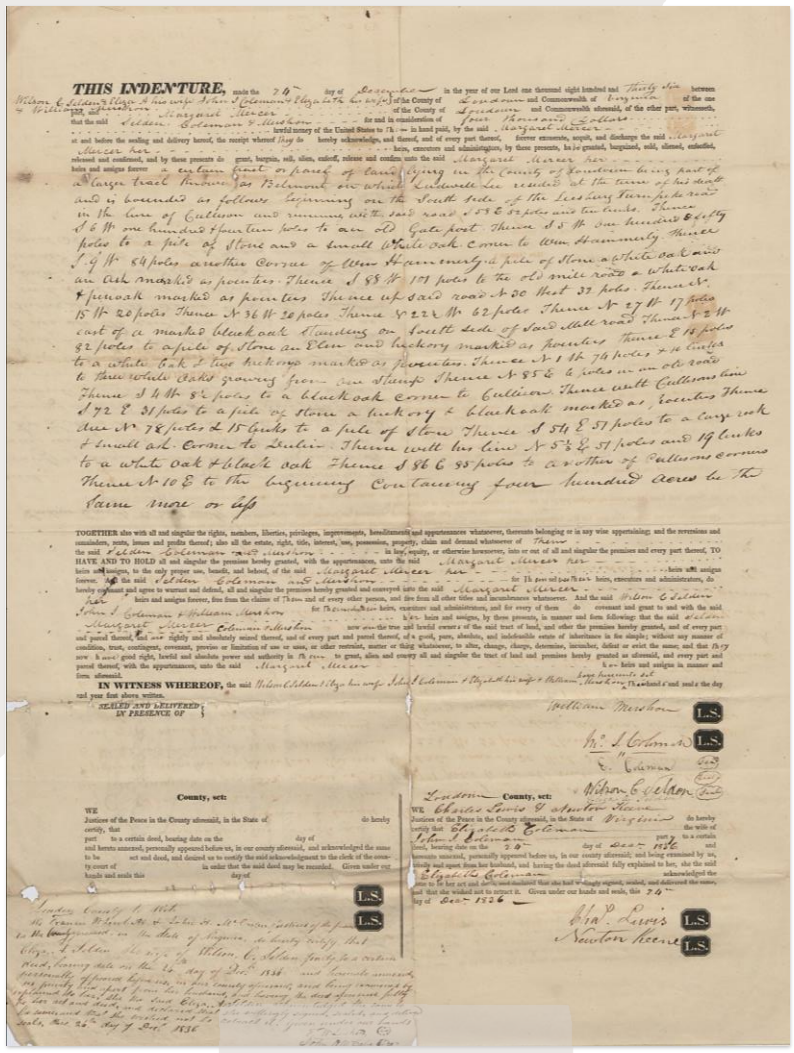 THIS INDENTURE, made the 24th day of December in the year of our Lord one thousand eight hundred and Thirty Six between
Wilson C Selden & Eliza A his wife John J Coleman & Elizabeth his wife of the County of Loudoun and Commonwealth of Virginia of the one
& William Mershon
part, and Margaret Mercer of the County of Loudoun and Commonwealth aforesaid, of the other part, witnesseth,
that the said Selden Coleman & Mershon for and in consideration of four thousand Dollars
lawful money of the United States to in hand paid, by the said Margaret Mercer
at and before the sealing and delivery hereof, the receipt whereof they do hereby acknowledge, and thereof, and of every part thereof, forever exonerate, acquit, and discharge the said Margaret
Mercer her heirs, executors and administrators, by these presents, granted, bargained, sold, aliened, enfeoffed,
released and confirmed, and by these presents do grant, bargain, sell, alien, enfeoff, release and confirm unto the said Margaret Mercer her
heirs and assigns forever a certain tract or parcel of land lying in the County of Loudoun being part of
a larger tract known as Belmont on which Ludwell Lee resided at the time of his death
and is bounded as follows beginning on the South side of the Leesburg Turnpike road
in the line of Cullison and running with said road S 58 E 52 poles and ten links. Thence
S 6 W one hundred & fourteen poles to an old Gate post Thence S 5 W one hundred & fifty
poles to a pile of Stone and a small White oak corner to Wm Hammerly Thence
S 9 W 84 poles another corner of Wm Hammerly a pile of Stone a white oak and
an Ash marked as pointers. Thence S 88 W 101 poles to the old mill road a white oak
& pin oak marked as pointers Thence up said road N 30 West 32 poles. Thence N
15 W 20 poles Thence N 36 W 20 poles Thence N 22½ W 62 poles Thence N 27 W 17 poles
east of a marked black oak standing on South side of Said Mill road Thence N 2 W
82 poles to a pile of Stone an Elm and hickory marked as pointers thence E 15 poles
to a white oak & two hickorys marked as pointers. Thence N 1 W 74 poles & 11 links
to three white oaks growing from one Stump Thence N 85 E 6 poles in an old road
Thence S 4 W 8½ poles to a black oak corner to Cullison Thence with Cullisons line
S 72 E 31 poles to a pile of stone a hickory & black oak marked as pointers Thence
due N 78 poles & 15 links to a pile of Stone Thence S 54 E 51 poles to a large rock
& small ash. corner to Thence with his line N 5 E 51 poles and 19 links
to a white oak & black oak Thence S 86 E 85 poles to another of Cullisons corners
Thence N 10 E to the beginning Containing four hundred Acres be the
Same more or less
TOGETHER also with all and singular the rights, members, liberties, privileges, improvements, hereditaments and appurtenances whatsoever, thereunto belonging or in any wise appertaining; and the reversions and
remainders, rents, issues and profits thereof; also all the estate, right, title, interest, use, possession, property, claim and demand whatsoever of Them
the said Selden Coleman and Mershon in law, equity, or otherwise howsoever, into or out of all and singular the premises and every part thereof, TO
HAVE AND TO HOLD all and singular the premises hereby granted, with the appurtenances, unto the said Margaret Mercer her
heirs and assigns, to the only proper use, benefit, and behoof, of the said Margaret Mercer her heirs and assigns
forever. And the said Selden Coleman and Mershon for Them and for their heirs, executors and administrators, do
hereby covenant and agree to warrant and defend, all and singular the premises hereby granted and conveyed unto the said Margaret Mercer
her heirs and assigns forever, from the claims of Them and of every other person, and free from all other titles and incumbrances whatsoever. And the said Wilson C Selden
John J Coleman & William Mershon for Themselves heirs, executors and administrators, and for every of them do covenant and to and with the said
Margaret Mercer her heirs and assigns, by these presents, in manner and form following: that the said Selden
Coleman Mershon now the true and lawful owners of the said tract of land, and other the premises hereby granted, and of every part
and parcel thereof, and are rightly and absolutely seized thereof, and of every part and parcel thereof, of a good, pure, absolute, and indefeasible estate of inheritance in fee simple; without any manner of
condition, trust, contingent, covenant, proviso or limitation of use or uses, or other restraint, matter or thing whatsoever, to alter, change, charge, determine, incumber, defeat or evict the same; and that they
now have good right, lawful and absolute power and authority in to grant, alien and convey all and singular the tract of land and premises hereby granted as aforesaid, and every part and
parcel thereof, with the appurtenances, unto the said Margaret Mercer her heirs and assigns in manner and
form aforesaid.
IN WITNESS WHEREOF, the said Wilson C Selden & Eliza his wife John J Coleman & Elizabeth his wife & William Mershon have hereunto set Their hands and seals the day
and year first above written.
SEALED AND DELIVERED
IN PRESENCE OF
William Mershon L.S.
Jno. J. Coleman L.S.
E. Coleman Seal
Wilson C Selden Seal
County, sct:
WE
Justices of the Peace in the County aforesaid, in the State of do hereby
certify, that
part to a certain deed, bearing date on the day of
and hereto annexed, personally appeared before us, in our county aforesaid, and acknowledged the same
to be act and deed, and desired us to certify the said acknowledgment to the clerk of the county
court of in order that the said deed may be recorded. Given under our
hands and seals this day of
L.S.
L.S.
Loudoun County, sct:
WE Charles Lewis & Newton Keene
Justices of the Peace in the county aforesaid, in the State of Virginia do hereby
certify that Elizabeth Coleman the wife of
John J Coleman part y to a certain
deed, bearing date on the 24th day of Decr 1836 and
hereunto annexed, personally appeared before us, in our county aforesaid; and being examined by us,
privily and apart from her husband, and having the deed aforesaid fully explained to her, she the said
Elizabeth Coleman acknowledged the
same to be her act and deed, and declared that she had willingly signed, sealed, and delivered the same,
and that she wished not to retract it. Given under our hands and seals, this 24th
day of Decr 1836
Chas. Lewis L.S.
Newton Keene L.S.
Loudoun County to Wit
We Francis W Luckett & John H. McCabe Justices of the peace
in the County aforesaid in the State of Virginia do hereby certify that
Eliza A Selden the wife of Wilson C. Selden party to a certain
deed, bearing date on the 24th day of Decr 1836 and hereunto annexed
personally appeared before us, in our county aforesaid, and being examined by
us privily and apart from her husband, and having the deed aforesaid fully
explained to her, she the said Eliza A Selden acknowledged the same to
be her act and deed, and declared that she willingly signed, sealed and delivered
the same and that she wished not to retract it, given under our hands
seals, this 26th day of Decr 1836